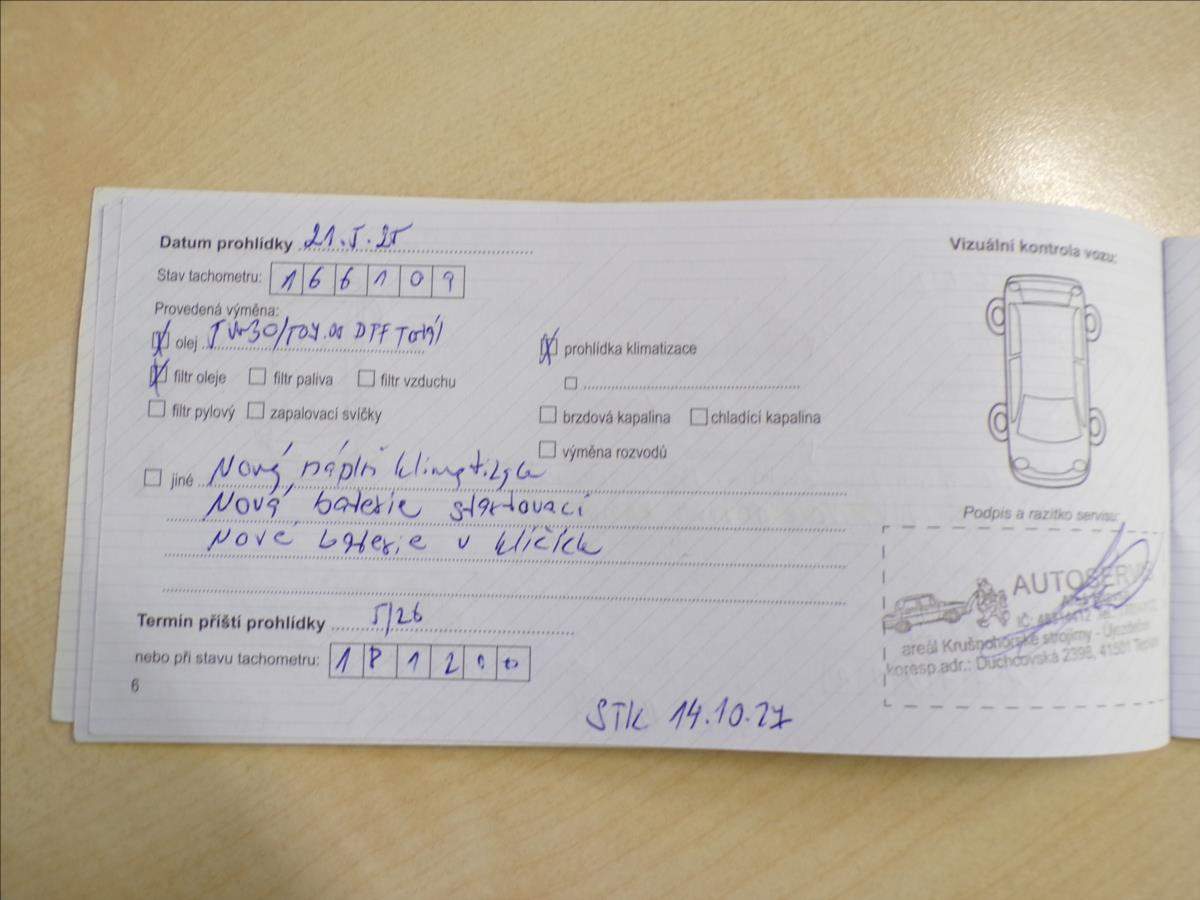 Datum prohlídky 21.5.25
Vizuální kontrola vozu:
Stav tachometru: 166109
Provedená výměna:
olej 5W30/ DPF Total
prohlídka klimatizace
filtr oleje filtr paliva filtr vzduchu
filtr pylový zapalovací svíčky
brzdová kapalina chladící kapalina
výměna rozvodů
jiné Nová náplň klimatizace
Nová baterie startovací
Nové baterie v klíčích
Podpis a razítko servisu:
AUTOSERVIS
IČ:
areál Krušnohorské strojírny - Újezdeček
koresp.adr.: Duchcovská 2398, 41501 Teplice
Termín příští prohlídky 5/26
nebo při stavu tachometru: 181200
6
STK 14.10.27